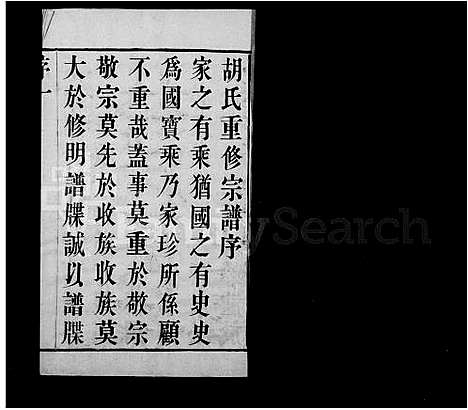 胡氏重修宗譜序
家之有乘猶國之有史史
爲國寶乘乃家珍所係顧
不重哉蓋事莫重於敬宗
敬宗莫先於收族收族莫
大於修明譜牒誠以譜牒
序一
Search